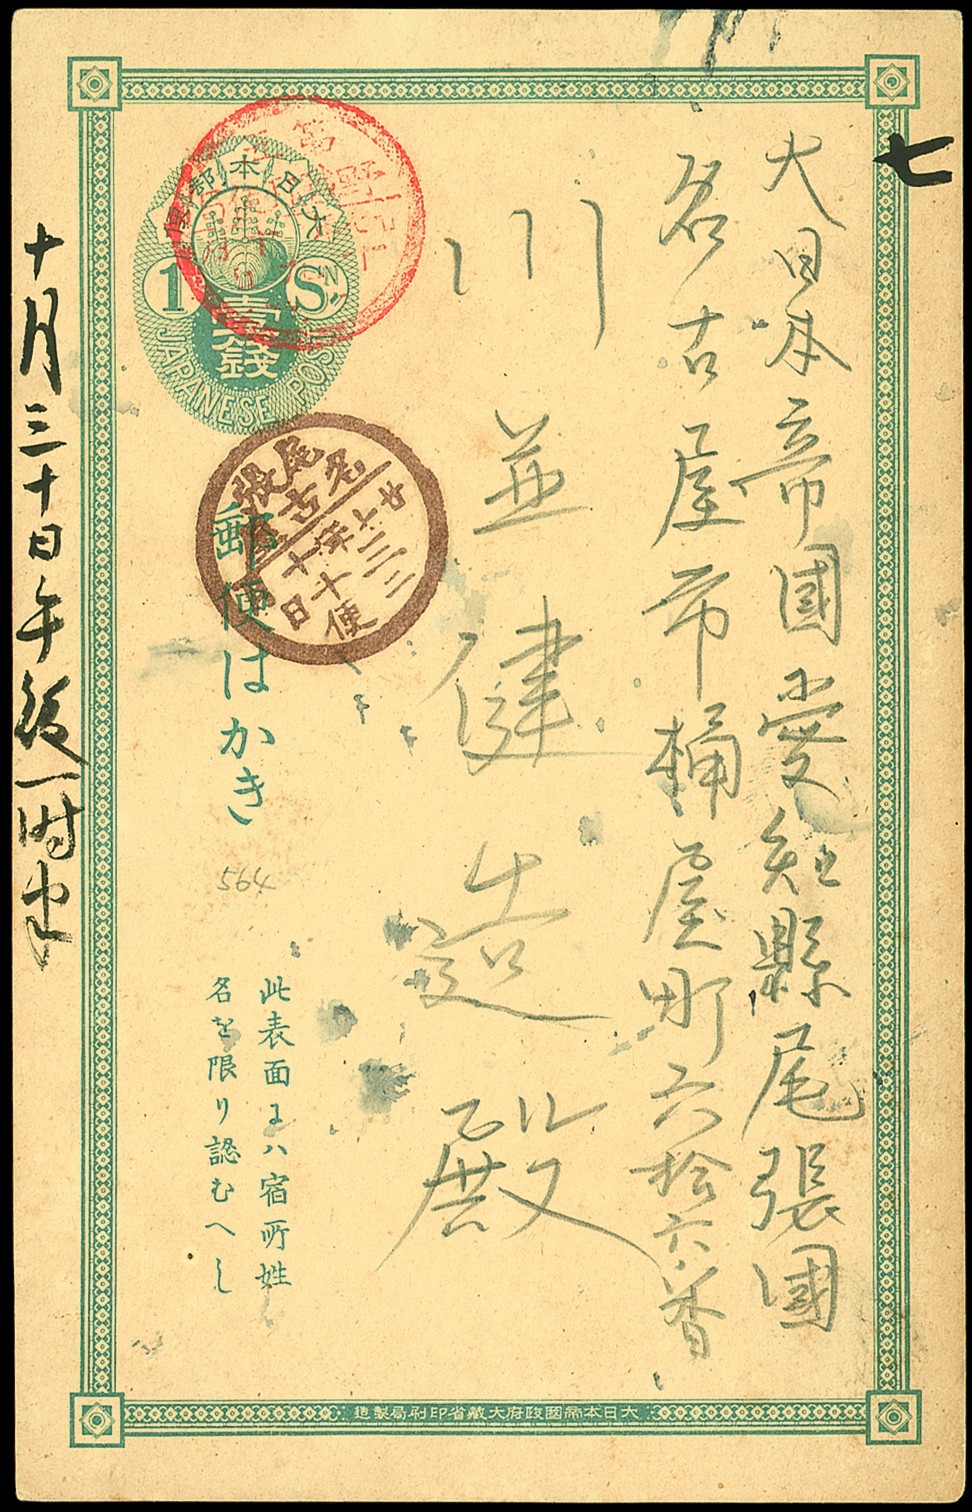 七
大日本帝國愛知縣尾張國
名古屋市桶屋町六拾六番
川並健造殿
大日本郵便
1 Sⁿ
壹錢
JAPANESE POST
尾張
名古屋
廿七年
十日
便
郵便はかき
564
此表面にハ宿所姓
名を限り認むへし
十月三十日午後一時半
大日本帝國政府大藏省印刷局製造